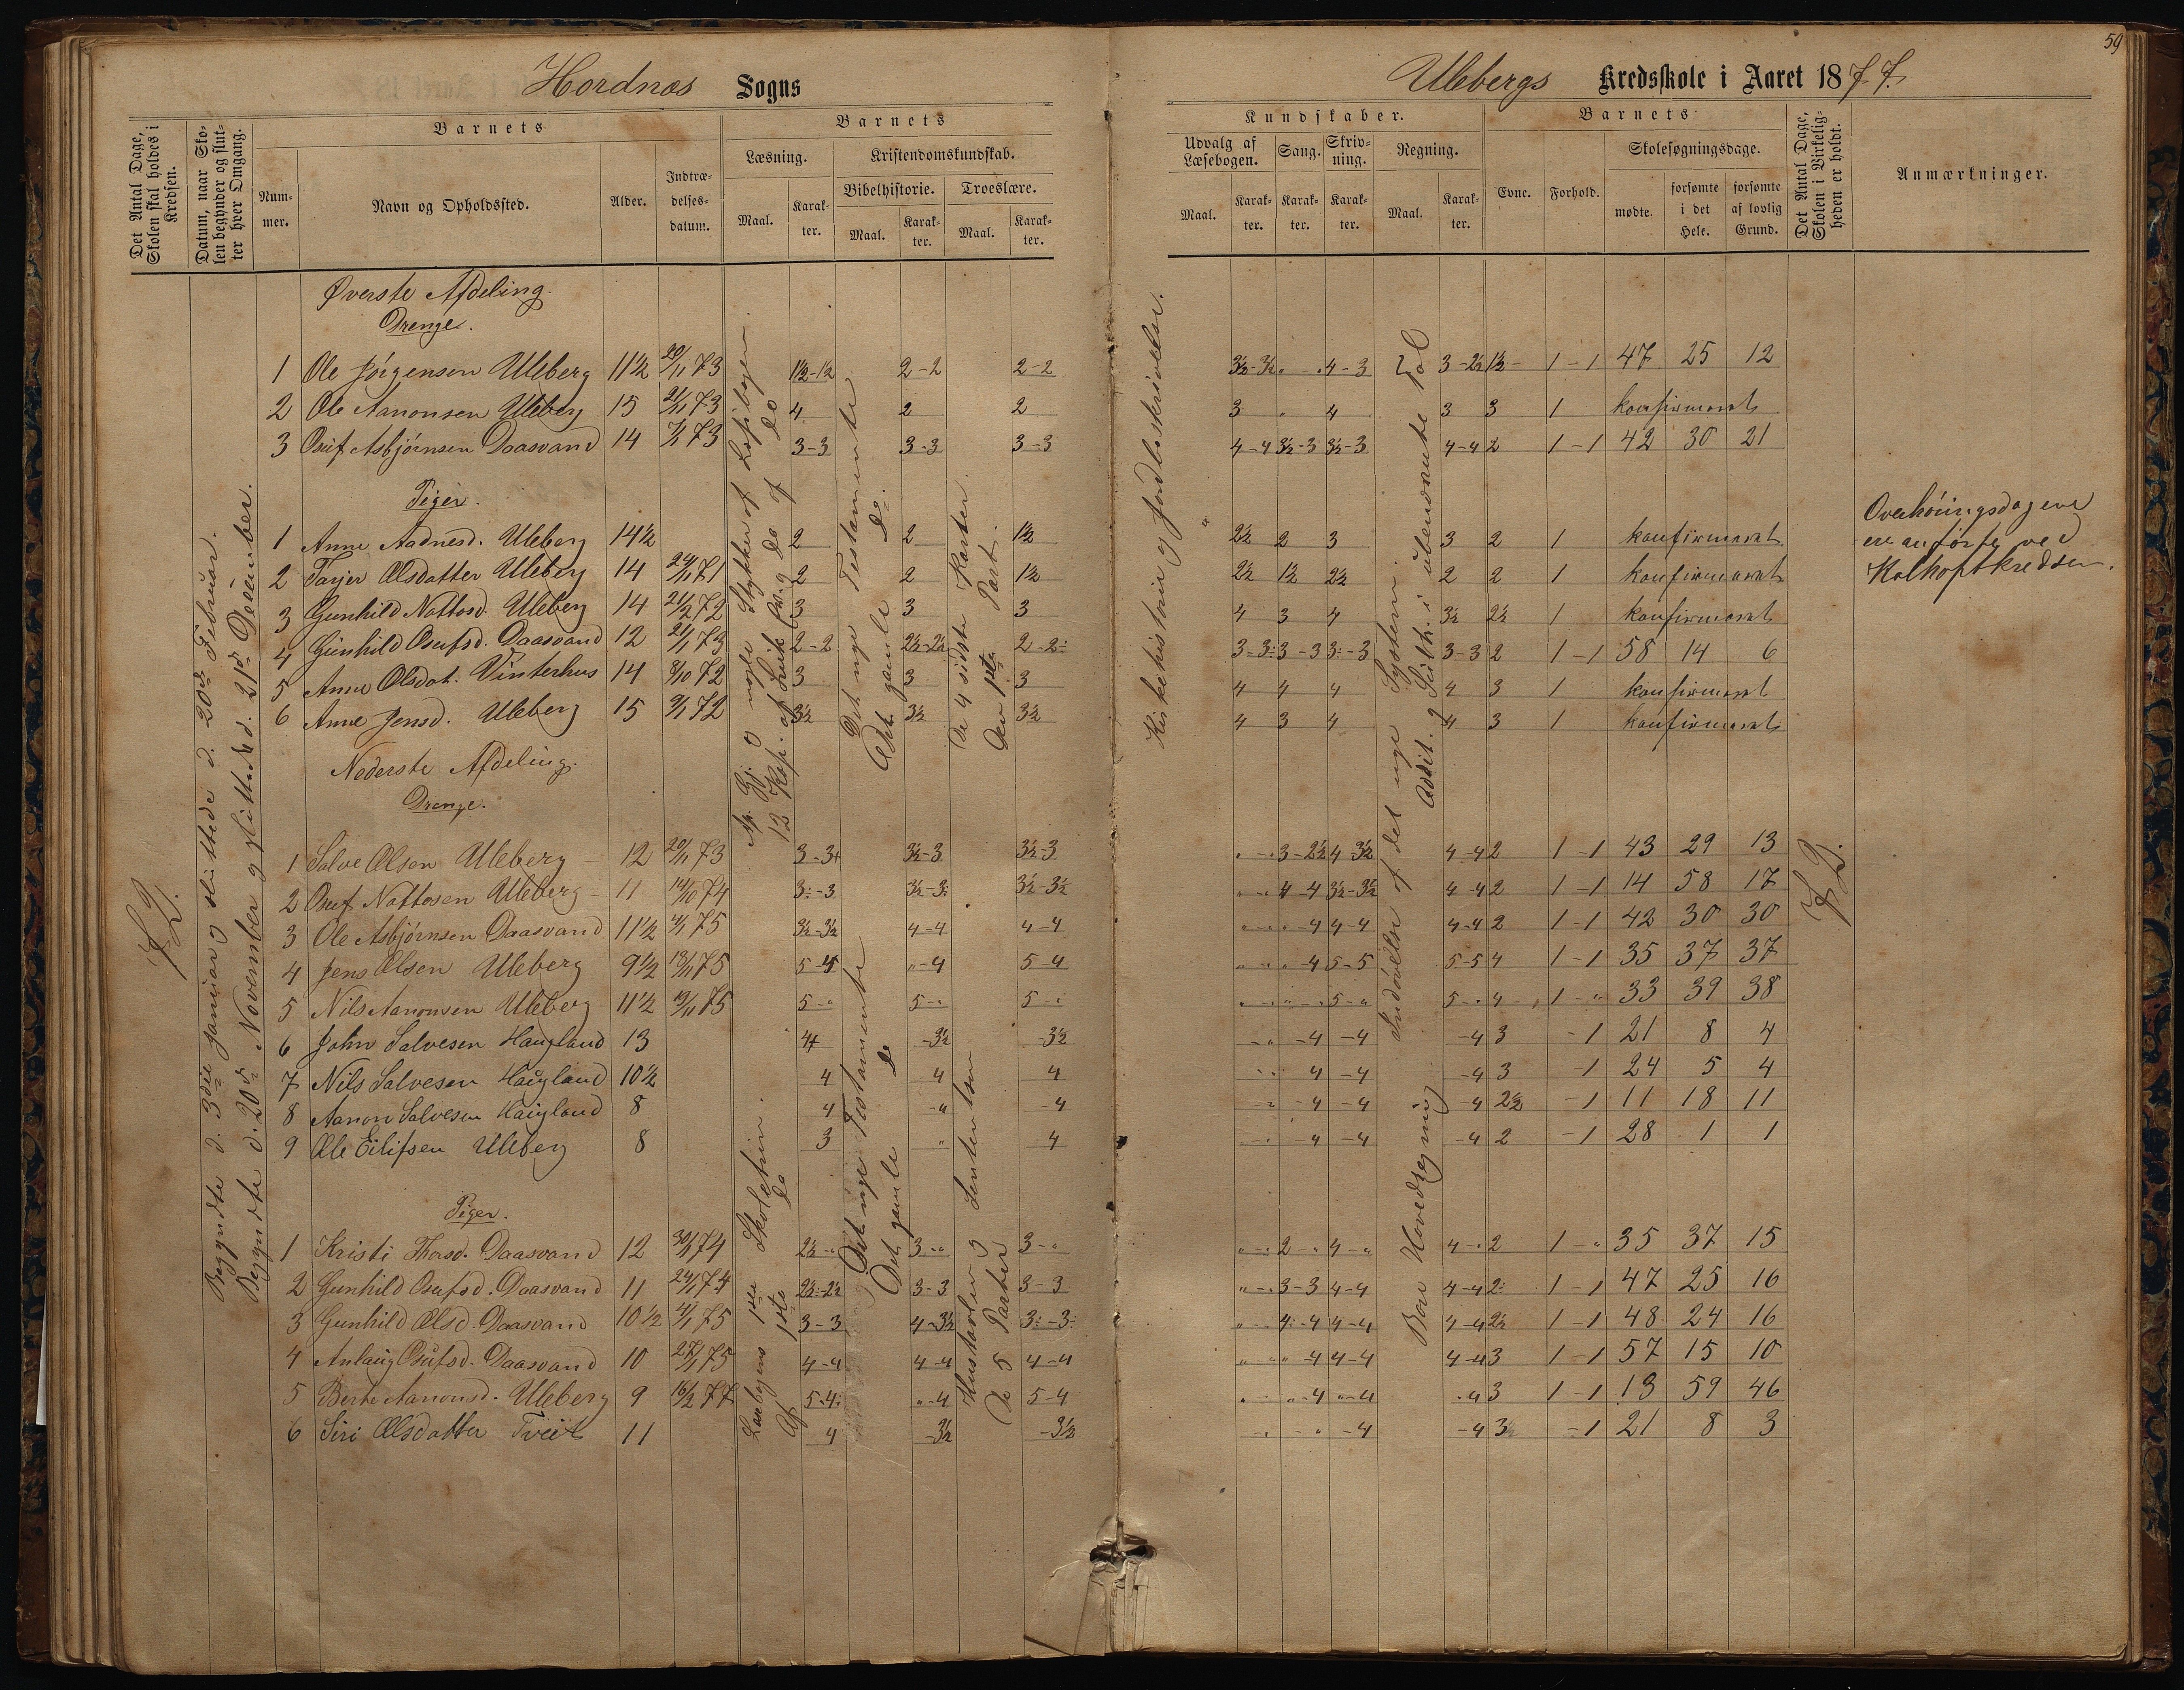 59
Hordnæs Sogns
Ulebergs Kredsskole i Aaret 1877.
Det Antal Dage, Skolen skal holdes i Kredsen.
Datum, naar Skolen begynder og slutter hver Omgang.
Barnets
Nummer.
Navn og Opholdssted.
Alder.
Indtrædelsesdatum.
Barnets
Læsning.
Kristendomskundskab.
Bibelhistorie.
Troeslære.
Maal.
Karakter.
Maal.
Karakter.
Maal.
Karakter.
Kundskaber.
Udvalg af Læsebogen.
Sang.
Skrivning.
Regning.
Maal.
Karakter.
Karakter.
Karakter.
Maal.
Karakter.
Barnets
Evne.
Forhold.
Skolesøgningsdage.
mødte.
forsømte i det Hele.
forsømte af lovlig Grund.
Det Antal Dage, Skolen i Virkeligheden er holdt.
Anmærkninger.
72.
Begyndte d. 3die Januar og sluttede d. 20de Februar.
Begyndte d. 20de November og sluttede d. 21de December.
Øverste Afdeling.
Drenge.
1 Ole Jörgensen Uleberg 11½ 20/11 73 1½-1½ 2-2 2-2 3½-3½ " " 4-3 3-2½ 1½ 1-1 47 25 12
2 Ole Aanonsen Uleberg 15 21/11 73 4 2 2 3 " 4 3 3 1 konfirmeret
3 Osuf Asbjørnsen Daasvand 14 7/1 73 3-3 3-3 3-3 4-4 3½-3 3½-3 4-4 2 1-1 42 30 21
Piger.
1 Anne Aadnesd. Uleberg 14½ 2 2 1½ 2½ 2 3 3 2 1 konfirmeret
2 Tarjer Olsdatter Uleberg 14 24/11 71 2 2 1½ 2½ 1½ 2½ 2 2 1 konfirmeret
3 Gunhild Nottosd. Uleberg 14 21/2 72 3 3 3 4 3 4 3½ 2½ 1 konfirmeret
4 Gunhild Osufsd. Daasvand 12 21/1 73 2-2 2½-2½ 2-2÷ 3-3÷ 3-3 3÷-3 3-3 2 1-1 58 14 6
5 Anne Olsdat. Vinterhus 14 8/10 72 3 3 3 4 4 4 4 3 1 konfirmeret
6 Anne Jensd. Uleberg 15 9/1 72 3½ 3½ 3½ 4 3 4 4 3 1 konfirmeret
Overhöiringsdagene
ere anförte ved
Kolhoftkredsen.
Nederste Afdeling.
Drenge.
1 Salve Olsen Uleberg 12 20/11 73 3-3+ 3½-3 3½-3 " - " 3-2½ 4-3½ 4-4 2 1-1 43 29 13
2 Osuf Nottosen Uleberg 11 14/10 74 3÷-3 3½-3÷ 3½-3½ " - " 4-4 3½-3½ 4-4 2 1-1 14 58 17
3 Ole Asbjörnsen Daasvand 11½ 4/1 75 3½-3½ 4-4 4-4 " - " "-4 4-4 4-4 2 1-1 42 30 30
4 Jens Olsen Uleberg 9½ 13/11 75 5-4 "-4 5-4 " - " "-4 5-5 5-5 4 1-1 35 37 37
5 Nils Aanonsen Uleberg 11½ 19/11 75 5-" 5-" 5-" " - " "-" 5-" 5-" 4 1-" 33 39 38
6 John Salvesen Haugland 13 4+ -3½ -3½ -" -4 -4 -4 3 -1 21 8 4
7 Nils Salvesen Haugland 10½ 4 4 4 " " 4 -4 -4 3 -1 24 5 4
8 Aanon Salvesen Haugland 8 4 -" -4 -" -4 -4 -4 2½ -1 11 18 11
9 Ole Eilifsen Uleberg 8 3 " 4 -" -4 -4 -4 2 -1 28 1 1
72.
Piger.
1 Kristi Thosd. Daasvand 12 30/1 74 2½-" 3-" 3-" "-" 2-" 4-" 4-" 2 1-" 35 37 15
2 Gunhild Osufsd. Daasvand 11 24/1 74 2½-2½ 3-3 3-3 "-" 3-3 4-4 4-4 2÷ 1-1 47 25 16
3 Gunhild Olsd. Daasvand 10½ 4/1 75 3-3 4-3½ 3÷-3÷ "-" 4-4 4-4 4-4 2½ 1-1 48 24 16
4 Anlaug Osufsd. Daasvand 10 27/1 75 4-4 4-4 4-4 "-" "-4 4-4 4-4 3 1-1 57 15 10
5 Berte Aanonsd. Uleberg 9 16/2 77 5-4÷ "-4 5-4 "-" "-4 "-4 "-4 3 1-1 13 59 46
6 Siri Olsdatter Tveit 11 4 -3½ -3½ -" -" -4 -4 3½ -1 21 8 3
Stykker af Læsebogen.
Det nye Testamente
Det gamle Do.
De 4 sidste Parter
Den 1ste Part.
Kirkehistorie og Jordbeskrivelse.
Indövelse af det nye System.
Addit. og Subtr. i ubenævnte Tal
Læsebogens 1ste Skoletrin.
Af 1ste do
Det nye Testamente
Det gamle do
Hustavlen og Sententser
De 5 Parter